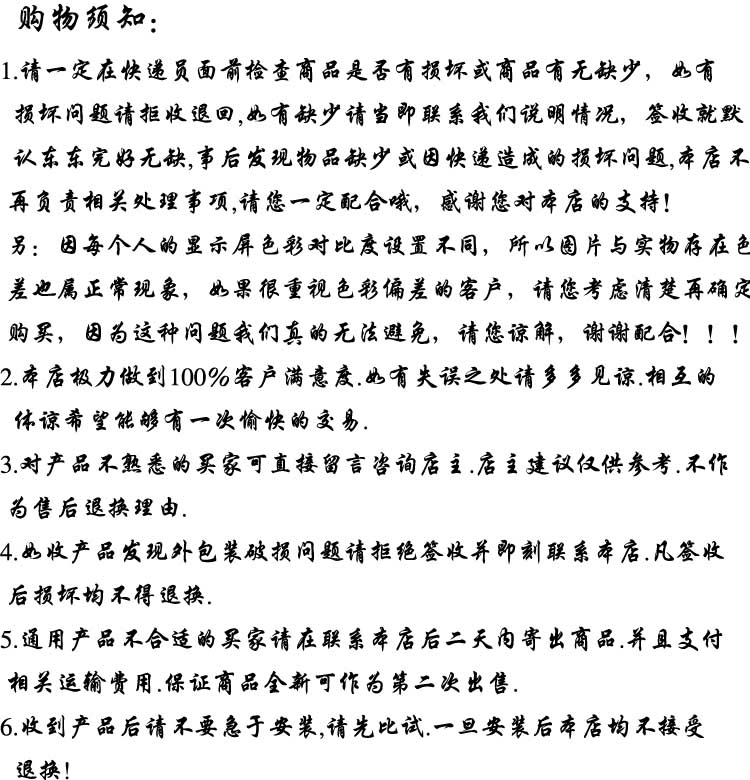 购物须知：
1.请一定在快递员面前检查商品是否有损坏或商品有无缺少，如有
损坏问题请拒收退回,如有缺少请当即联系我们说明情况，签收就默
认东东完好无缺,事后发现物品缺少或因快递造成的损坏问题,本店不
再负责相关处理事项,请您一定配合哦，感谢您对本店的支持！
另：因每个人的显示屏色彩对比度设置不同，所以图片与实物存在色
差也属正常现象，如果很重视色彩偏差的客户，请您考虑清楚再确定
购买，因为这种问题我们真的无法避免，请您谅解，谢谢配合！！！
2.本店极力做到100%客户满意度.如有失误之处请多多见谅.相互的
体谅希望能够有一次愉快的交易.
3.对产品不熟悉的买家可直接留言咨询店主.店主建议仅供参考.不作
为售后退换理由.
4.如收产品发现外包装破损问题请拒绝签收并即刻联系本店.凡签收
后损坏均不得退换.
5.通用产品不合适的买家请在联系本店后二天内寄出商品.并且支付
相关运输费用.保证商品全新可作为第二次出售.
6.收到产品后请不要急于安装,请先比试.一旦安装后本店均不接受
退换!